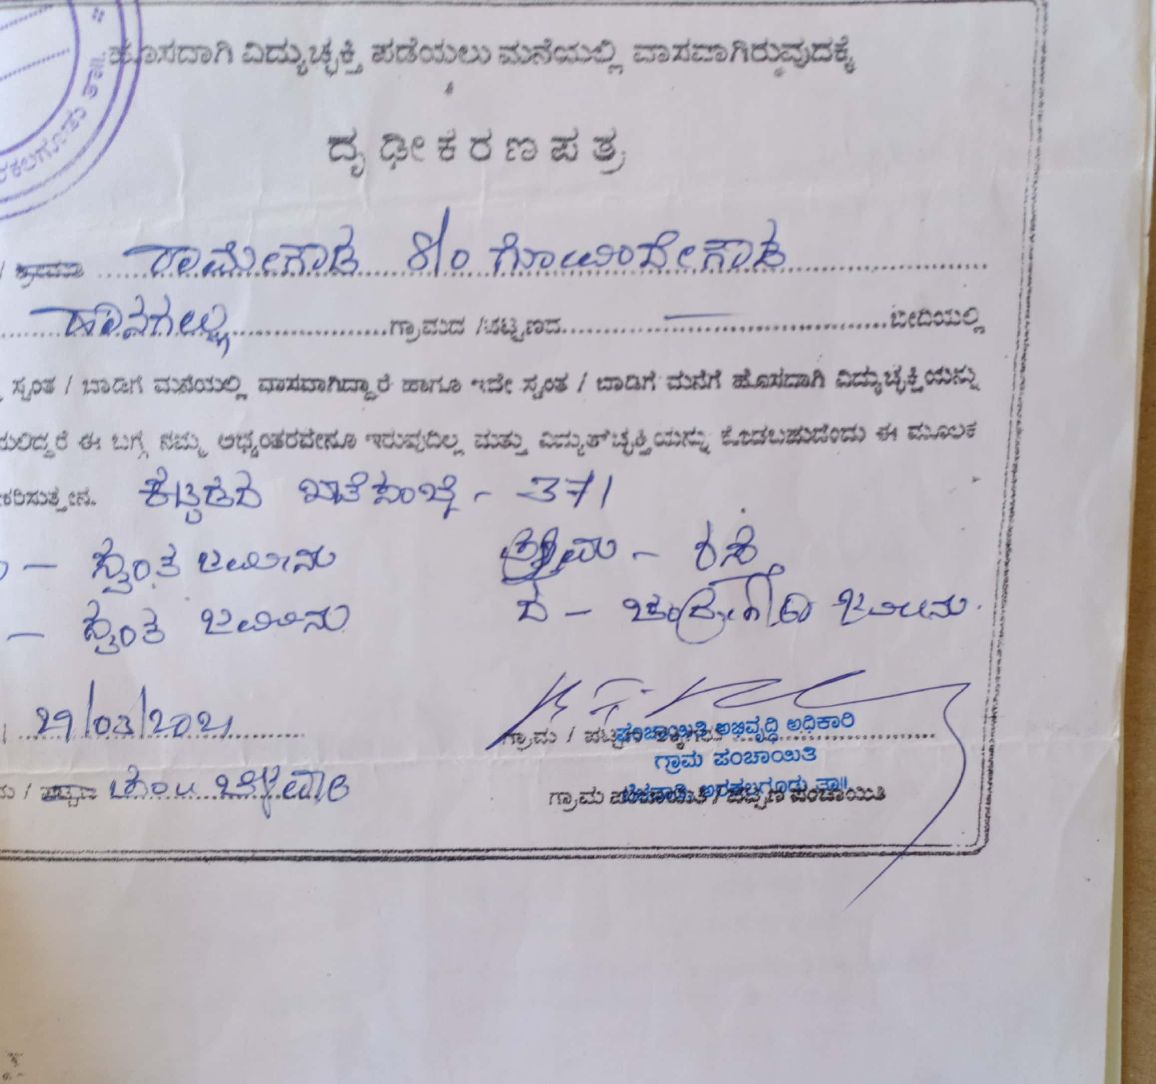 ಕಲಗೂಡು ತಾ॥
ಹೊಸದಾಗಿ ವಿದ್ಯುಚ್ಛಕ್ತಿ ಪಡೆಯಲು ಮನೆಯಲ್ಲಿ ವಾಸವಾಗಿರುವುದಕ್ಕೆ
ದೃಢೀಕರಣಪತ್ರ
ರಾಮೇಗೌಡ S/o ಗೋವಿಂದೇಗೌಡ
ಗ್ರಾಮದ / ಪಟ್ಟಣದ ಬೀದಿಯಲ್ಲಿ
ಸ್ವಂತ / ಬಾಡಿಗೆ ಮನೆಯಲ್ಲಿ ವಾಸವಾಗಿದ್ದಾರೆ ಹಾಗೂ ಇದೇ ಸ್ವಂತ / ಬಾಡಿಗೆ ಮನೆಗೆ ಹೊಸದಾಗಿ ವಿದ್ಯುಚ್ಛಕ್ತಿಯನ್ನು
ಈ ಬಗ್ಗೆ ನಮ್ಮ ಅಭ್ಯಂತರವೇನೂ ಇರುವುದಿಲ್ಲ ಮತ್ತು ವಿದ್ಯುತ್‌ಚ್ಛಕ್ತಿಯನ್ನು ಕೊಡಬಹುದೆಂದು ಈ ಮೂಲಕ
ಕರಿಸುತ್ತೇನೆ. ಕಟ್ಟಡದ ಖಾತೆ ಸಂಖ್ಯೆ - 371
— ಸ್ವಂತ ಜಮೀನು — ರಸ್ತೆ
— ಸ್ವಂತ ಜಮೀನು ದ — ಜಮೀನು.
29/03/2021
ಗ್ರಾಮ /
ಪಂಚಾಯಿತಿ ಅಭಿವೃದ್ಧಿ ಅಧಿಕಾರಿ
ಗ್ರಾಮ ಪಂಚಾಯಿತಿ
ಅರಕಲಗೂಡು ತಾ॥
ಗ್ರಾಮ ಪಂಚಾಯಿತಿ / ಪಟ್ಟಣ ಪಂಚಾಯಿತಿ